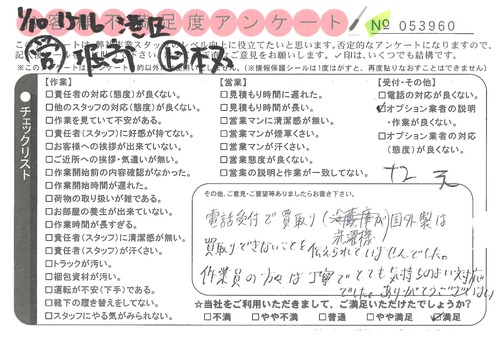 1/10 11ﾏﾙ 港区
お客様不満足度アンケート
№ 053960
このアンケートは弊社作業スタッフのレベル向上に役立てたいと思います。否定的なアンケートになりますので、
直ご意見をお願いします。✓印は、いくつでも結構です。
(※情報保護シールは1度はがすと、再度貼りなおすことはできません)
チェックリスト
【作業】
□責任者の対応(態度)が良くない。
□他のスタッフの対応(態度)が良くない。
□作業を見ていて不安がある。
□責任者(スタッフ)に好感が持てない。
□お客様への挨拶が出来ていない。
□ご近所への挨拶・気遣いが無い。
□作業開始前の内容確認がなかった。
□作業開始時間が遅れた。
□荷物の取り扱いが雑である。
□お部屋の養生が出来ていない。
□作業時間が長すぎる。
□責任者(スタッフ)に清潔感が無い。
□責任者(スタッフ)が汗くさい。
□トラックが汚い。
□梱包資材が汚い。
□運転が不安(下手)である。
□靴下の履き替えをしてない。
□スタッフにやる気がみられない。
【営業】
□見積もり時間に遅れた。
□見積もり時間が長い。
□営業マンに清潔感が無い。
□営業マンが煙草くさい。
□営業マンが汗くさい。
□営業態度が良くない。
□営業の説明と作業が一致してない。
【受付・その他】
□電話の対応が良くない。
☑オプション業者の説明
・作業が良くない。
□オプション業者の対応
(態度)が良くない。
その他、ご意見・ご要望等ありましたらお書き下さい。
電話受付で買取り(冷蔵庫が)国外製は
洗濯機
買取りできないことを伝えられていませんでした。
作業員の方は丁寧でとても気持ちのよい対応
でした。ありがとうございました
☆当社をご利用いただきまして、ご満足いただけたでしょうか?
□不満 □やや不満 □普通 □やや満足 ☑満足